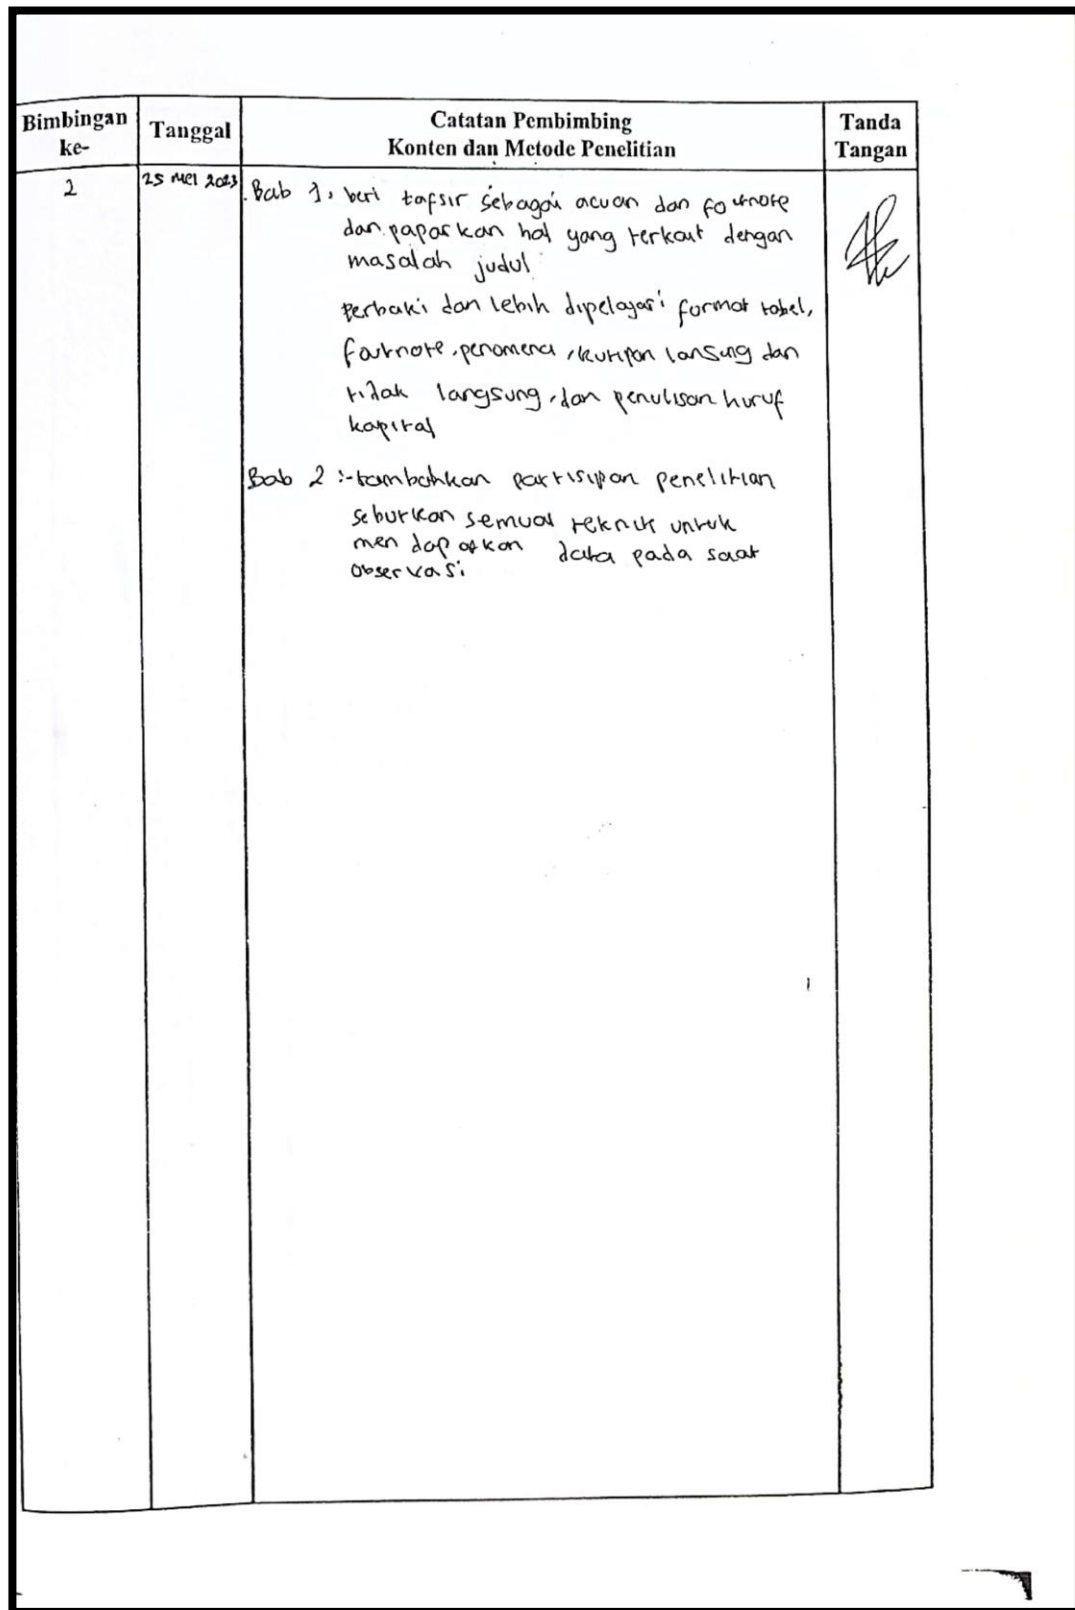 Bimbingan ke-
Tanggal
Catatan Pembimbing
Konten dan Metode Penelitian
Tanda Tangan
2
25 Mei 2023
Bab 1, beri tafsir sebagai acuan dan footnote
dan paparkan hal yang terkait dengan
masalah judul
perbaki dan lebih dipelajari format tabel,
footnote, penomena, kutipan lansung dan
tidak langsung, dan penulisan huruf
kapital
Bab 2 :- tambahkan partisipan penelitian
sebutkan semua teknik untuk
mendapatkan data pada saat
observasi